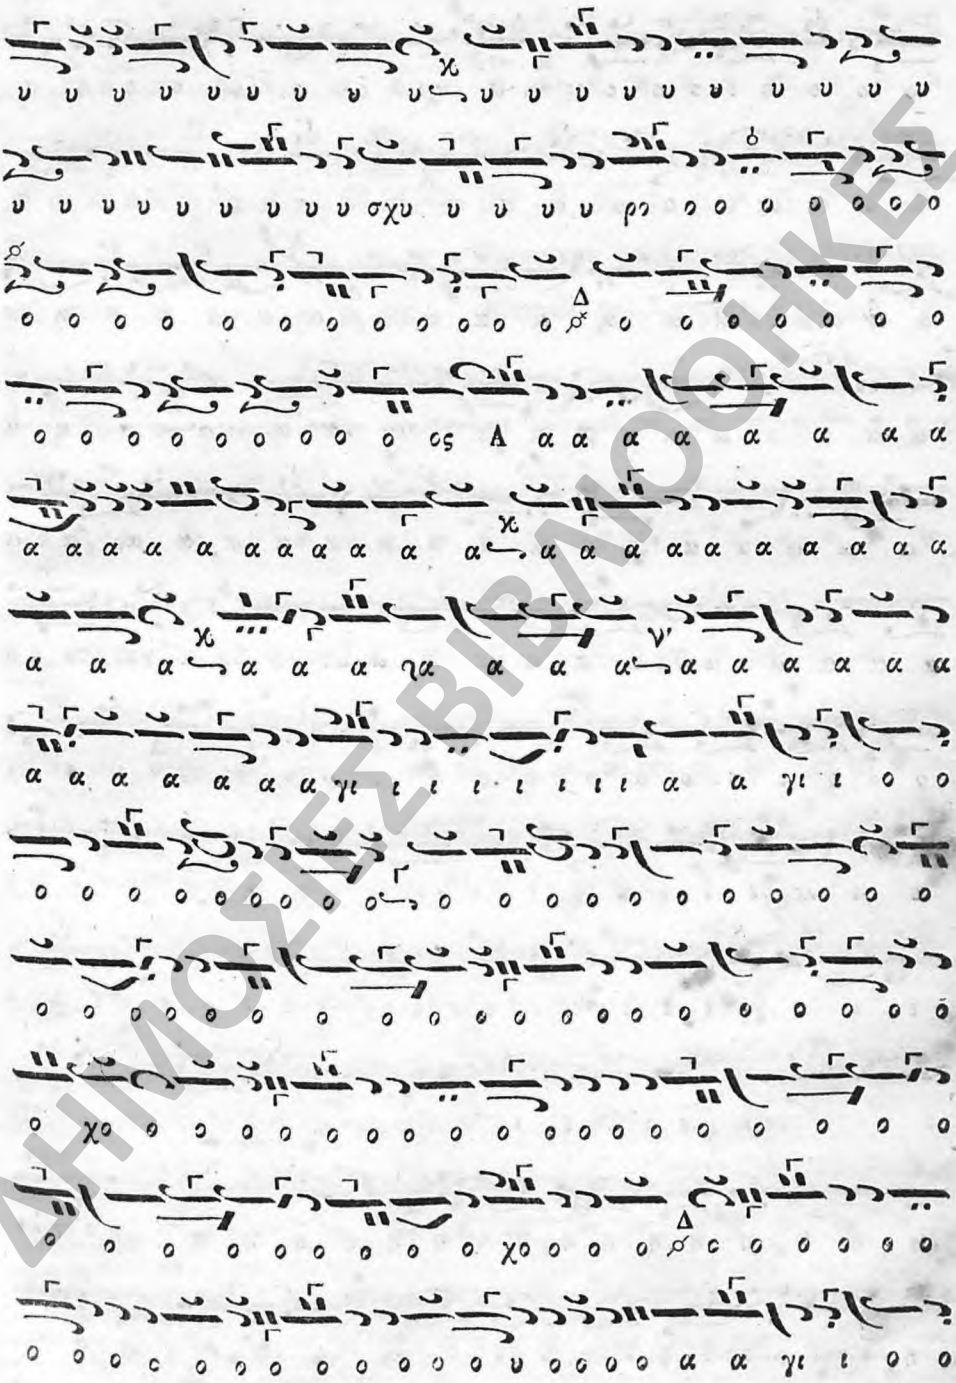 υ υ υ υ υ υ υ υ υ υ υ υ υ υ υ υ υ υ υ
υ υ υ υ υ υ υ υ υ σχυ υ υ υ υ ρο ο ο ο ο ο ο ο
ο ο ο ο ο ο ο ο ο ο ο ο Δ ο ο ο ο ο ο ο
ο ο ο ο ο ο ο ο ο ος Α α α α α α α α α
α α α α α α α α α α α α α α α α α α α α α
α α α α α ϡα α α α α α α α α α α
α α α α α α α γι ι ι ι ι ι ι ι α α γι ι ο ο
ο ο ο ο ο ο ο ο ο ο ο ο ο ο ο ο ο ο ο
ο ο ο ο ο ο ο ο ο ο ο ο ο ο ο ο ο ο ο
ο χο ο ο ο ο ο ο ο ο ο ο ο ο ο ο ο ο ο
ο ο ο ο ο ο ο ο ο χο ο ο ο Δ ο ο ο ο ο ο
ο ο ο ο ο ο ο ο ο ο ο ο υ ο ο ο ο α α γι ι ο ο
ΔΗΜΟΣΙΕΣ ΒΙΒΛΙΟΘΗΚΕΣ